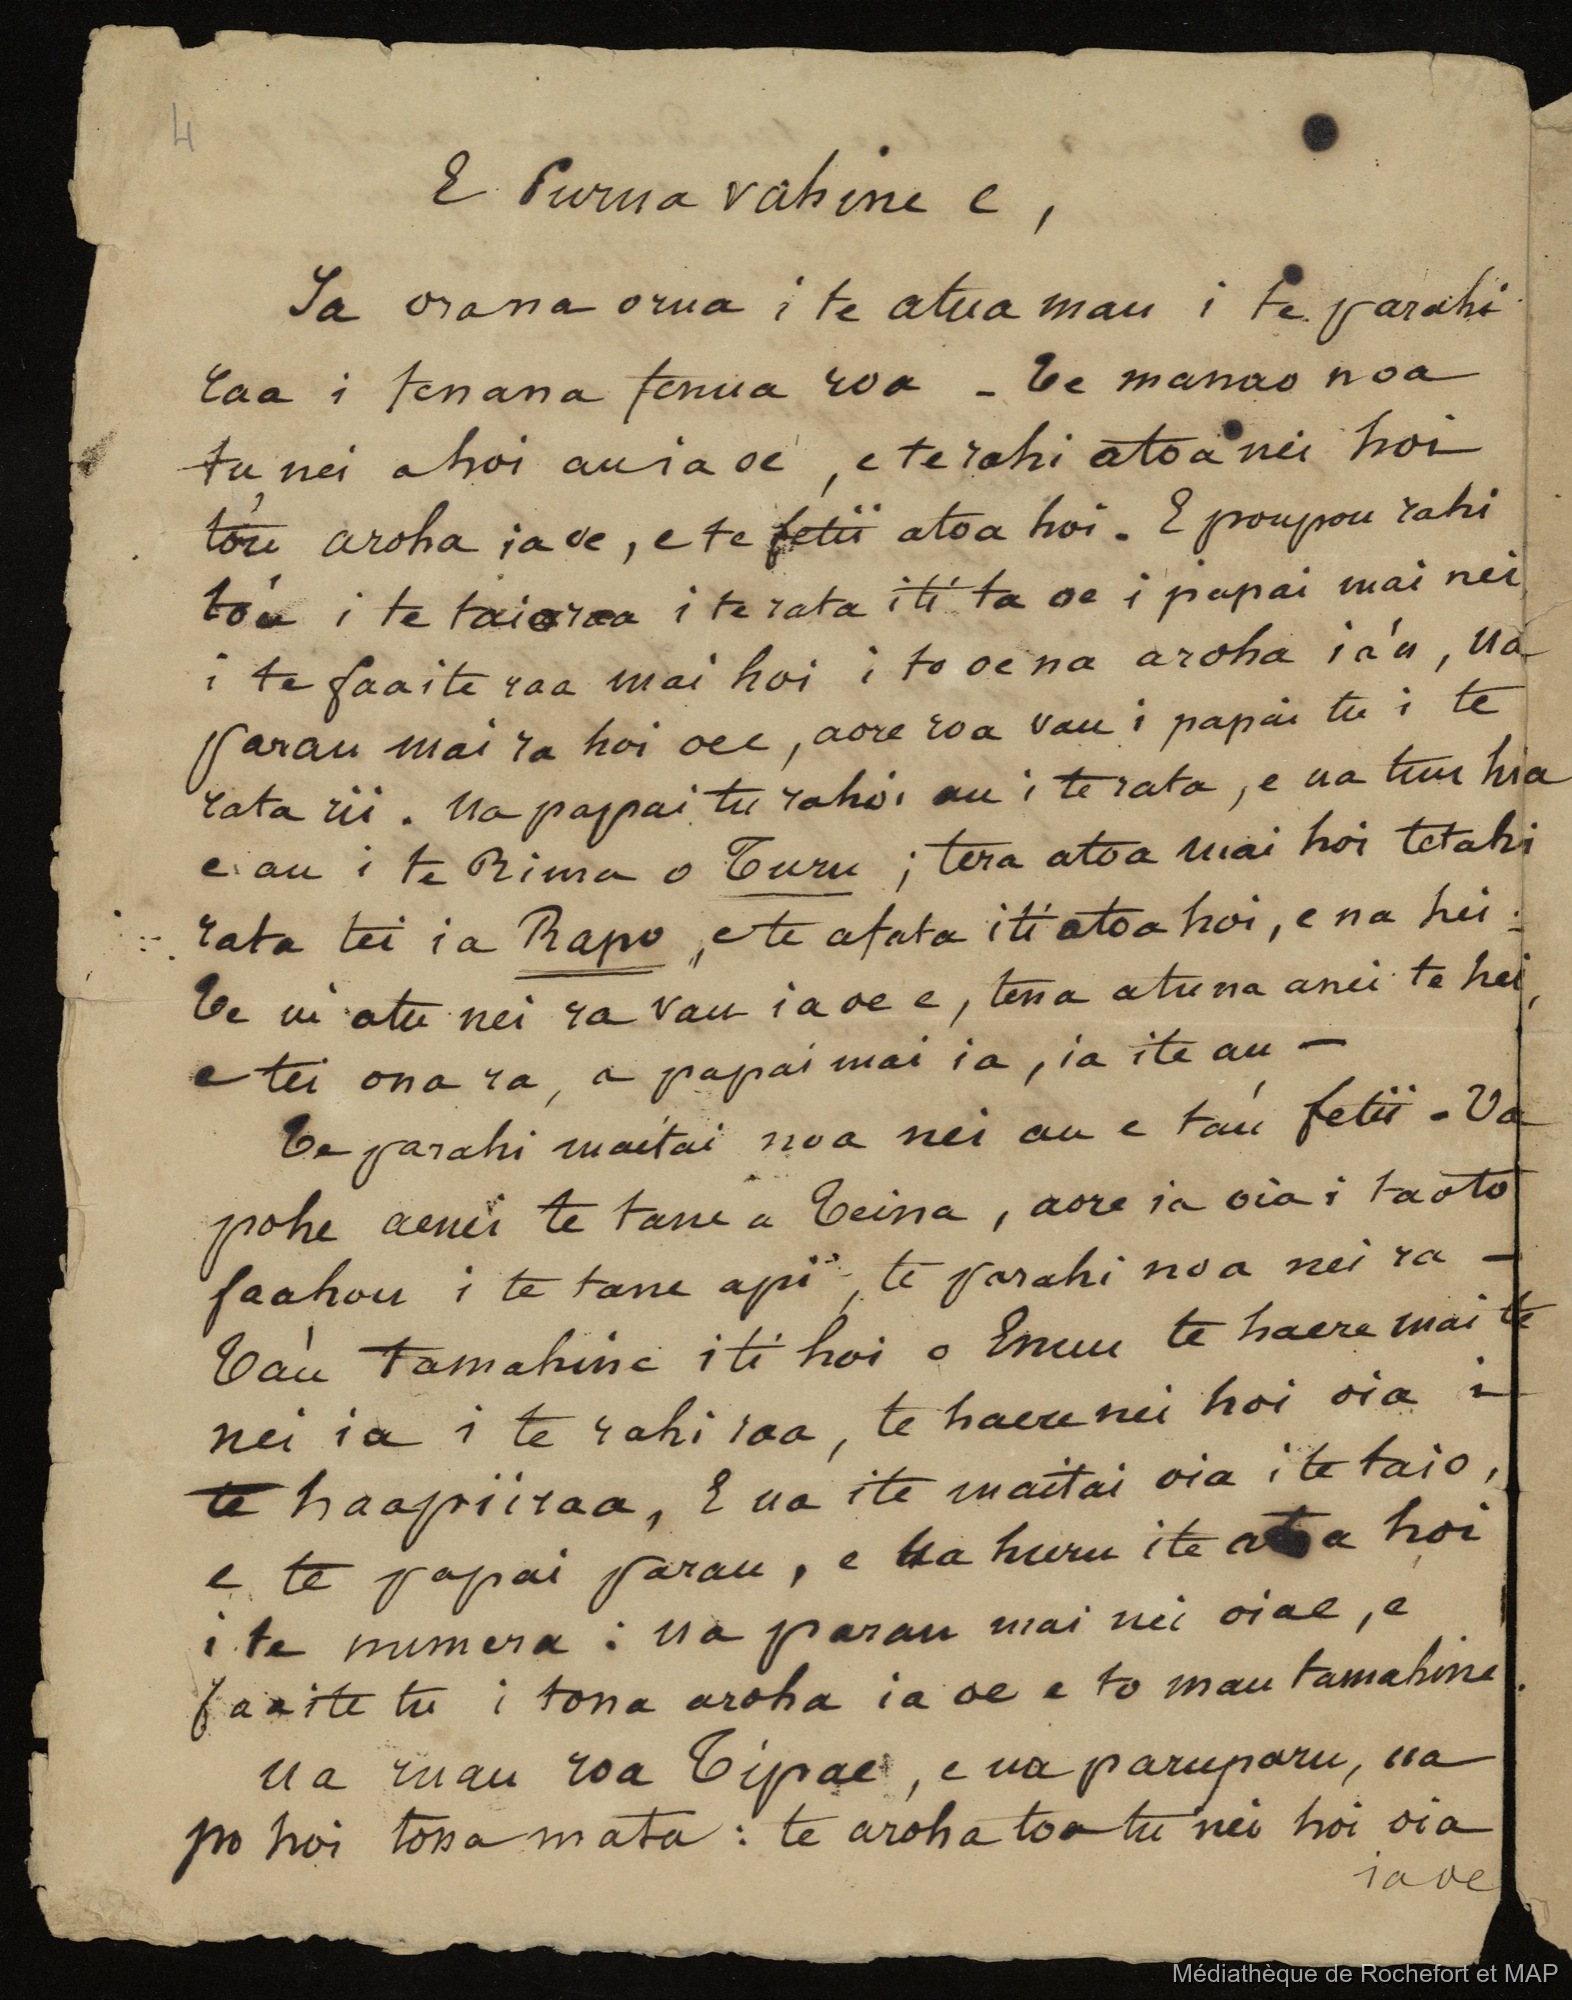 4
E Purua vahine e,
Ia orana orua i te atua mau i te parahi
raa i tenana fenua roa - Te manao noa
tu nei ahoi au ia oe, e te rahi atoa nei hoi
tóu aroha ia oe, e te fetii atoa hoi. E poupou rahi
tóu i te taioraa i te rata iti ta oe i papai mai nei
i te faaite raa mai hoi i to oe na aroha iá'u, Ua
parau mai ra hoi oe e, aore roa vau i papai tu i te
rata rii. Ua papai tu rahoi au i te rata, e ua tuu hia
e au i te Rima o Turu; tera atoa mai hoi tetahi
rata tei ia Rapo, e te afata iti atoa hoi, e na hei.
Te ui atu nei ra vau ia oe e, tena atu na anei te hei,
e tei ona ra, a papai mai ia, ia ite au -
Te parahi maitai noa nei au e táu fetii. Ua
pohe aenei te tane a Teina, aore ia oia i taoto
faahou i te tane api, te parahi noa nei ra -
Táu tamahine iti hoi o Emuu te haere mai te
nei ia i te rahi raa, te haere nei hoi oia i
te haapiiraa, E ua ite maitai oia i te taio,
e te papai parau, e ua huru ite atoa hoi
i te numera: Ua parau mai nei oia e, e
faaite tu i tona aroha ia oe e to mau tamahine.
Ua ruau roa Tipae, e ua paruparu, ua
po hoi tona mata: te aroha toa tu nei hoi oia
ia oe
Médiathèque de Rochefort et MAP